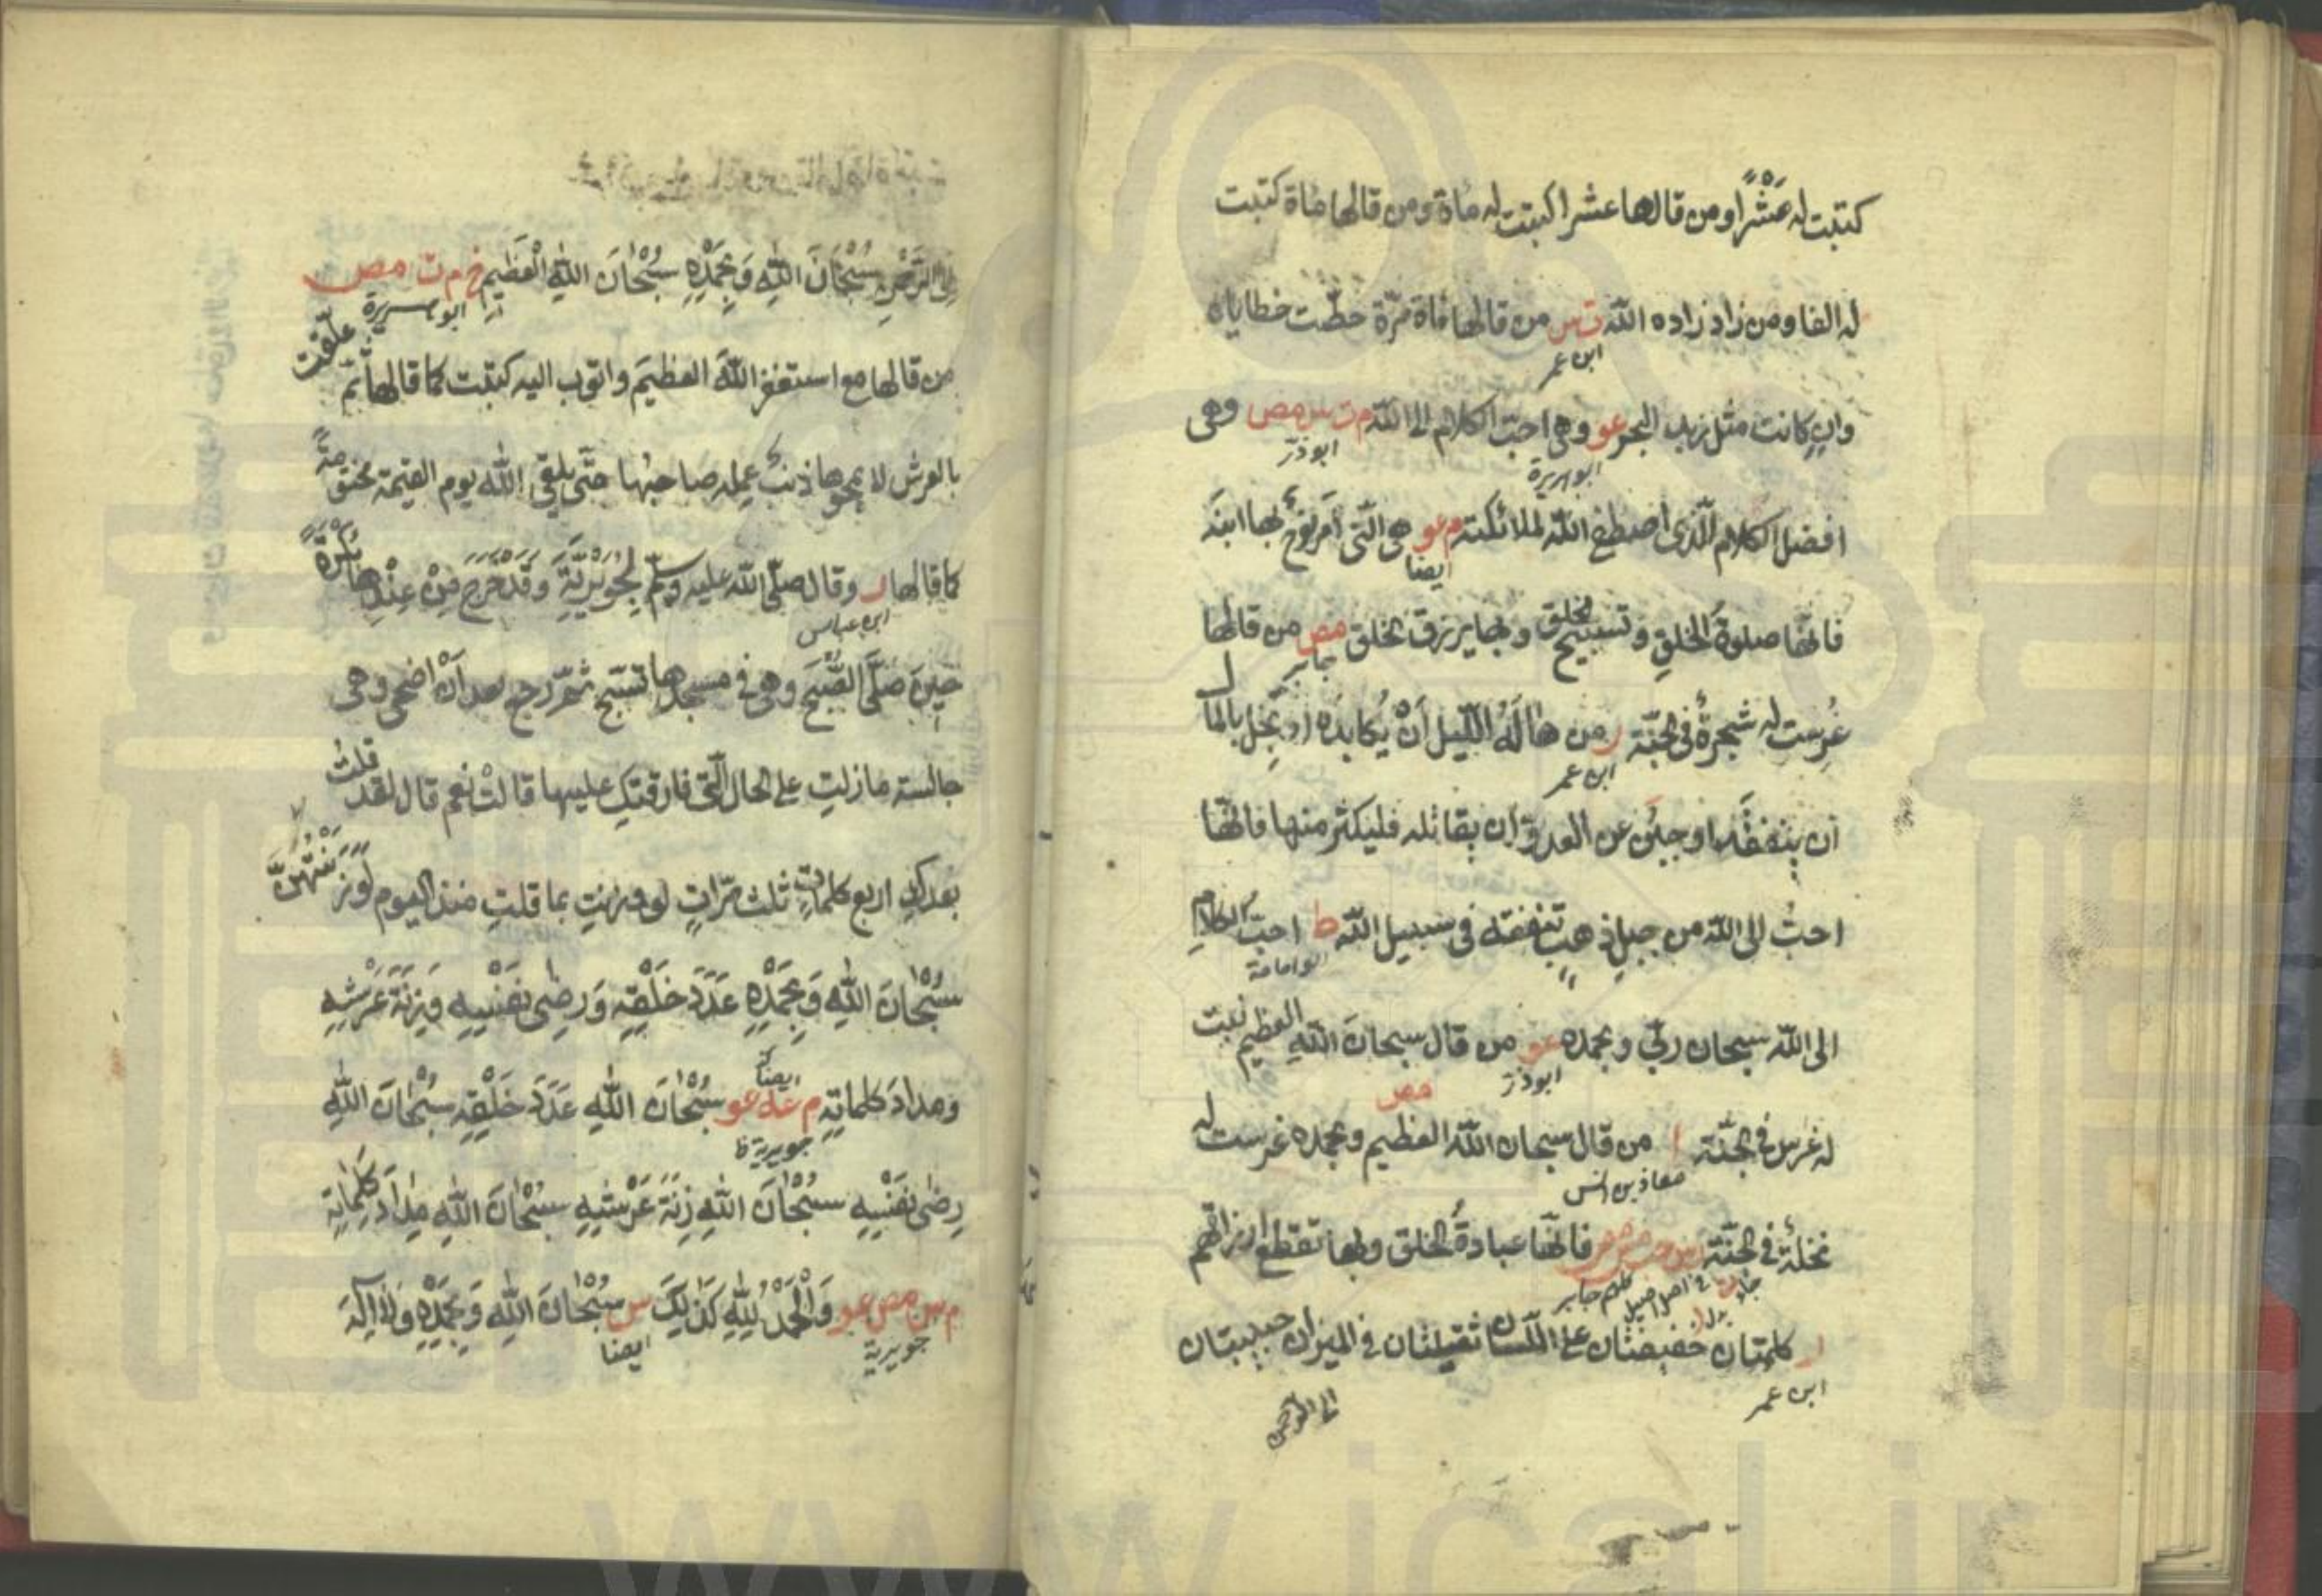 كتبت له عَشْرًا ومن قالها عشرا كتبت له مأة ومن قالها مأة كتبت
له الفا ومن زاد زاده الله ت س من قالها مأة مرّة حطّت خطاياه
ابن عمر
وان كانت مثل زبد البحر عو وهي احبّ الكلام الى الله م ت س مص وهى
ابو هريرة
ابو ذرّ
افضل الكلام الّذى اصطفى الله لملائكته م عو هى الّتى اَمَر نوحٌ بها ابنَه
ايضا
فانّها صلوةُ الخلقِ وتسبيح الخلق وبها يرزق الخلق مص من قالها
جابر
غُرِست له شجرةٌ فى الجنّة ر من هَالَهُ اللّيل اَنْ يُكابِدَه او بَخِل بالمال
ابن عمر
اَن ينفقَه او جبُن عن العدوّ اَن يقاتله فليكثر منها فانّها
احبُّ الى الله من جبلِ ذهبٍ تنفقه فى سبيل الله ط احبّ الكلام
ابو امامة
الى الله سبحان ربّي وبحمده عو من قال سبحانَ اللهِ العظيم نبت
ابو ذرّ
له غرس فى الجنّة ا من قال سبحان الله العظيم وبحمده غرست له
مص
معاذ بن انس
نخلةٌ فى الجنّة فانّها عبادةُ الخلق وبها تقطع ارزاقهم
جابر
ر كلمتان خفيفتان على اللّسان ثقيلتان فى الميزان حبيبتان
ابن عمر
الى الرحمن
اِلى الرَّحْمٰنِ سُبْحَانَ اللهِ وَبِحَمْدِهٖ سُبْحَانَ اللهِ الْعَظِيمِ خ م ت مص
ابو هريرة
من قالها مع استغفر اللهَ العظيمَ واتوب اليه كتبت كما قالها ثمّ علّقت
بالعرش لا يمحوها ذنبٌ عمِله صاحبُها حتّى يلقى الله يوم القيمة مختومةً
كما قالها ر وقال صلّى الله عليه وسلّم لِجُوَيْرِيَّةَ وَقَدْ خَرَجَ مِنْ عِنْدِها بُكْرَةً
ابن عباس
حِينَ صَلَّى الصُّبْحَ وهى فى مسجدها تسبّح ثمّ رجع بعد اَنْ اضحى وهى
جالسة مازلتِ على الحال الّتى فارقتكِ عليها قالتْ نعم قال لقد قلتُ
بعدكِ اربع كلماتٍ ثلث مرّاتٍ لو وزنت بما قلتِ منذ اليوم لَوَزَنَتْهُنَّ
سُبْحَانَ اللهِ وَبِحَمْدِهٖ عَدَدَ خَلْقِهٖ وَرِضٰى نَفْسِهٖ وَزِنَةَ عَرْشِهٖ
وَمِدادَ كلماتِهٖ م عه عو سُبْحَانَ اللهِ عَدَدَ خَلْقِهٖ سُبْحَانَ اللهِ
ايضًا
جويرية
رِضٰى نَفْسِهٖ سُبْحَانَ اللهِ زِنَةَ عَرْشِهٖ سُبْحَانَ اللهِ مِدَادَ كَلِمَاتِهٖ
م س مص عو وَالْحَمْدُ لِلّٰهِ كَذٰلِكَ س سُبْحَانَ اللهِ وَبِحَمْدِهٖ وَلَا اِلٰهَ
جويرية
ايضا
www.ical.ir